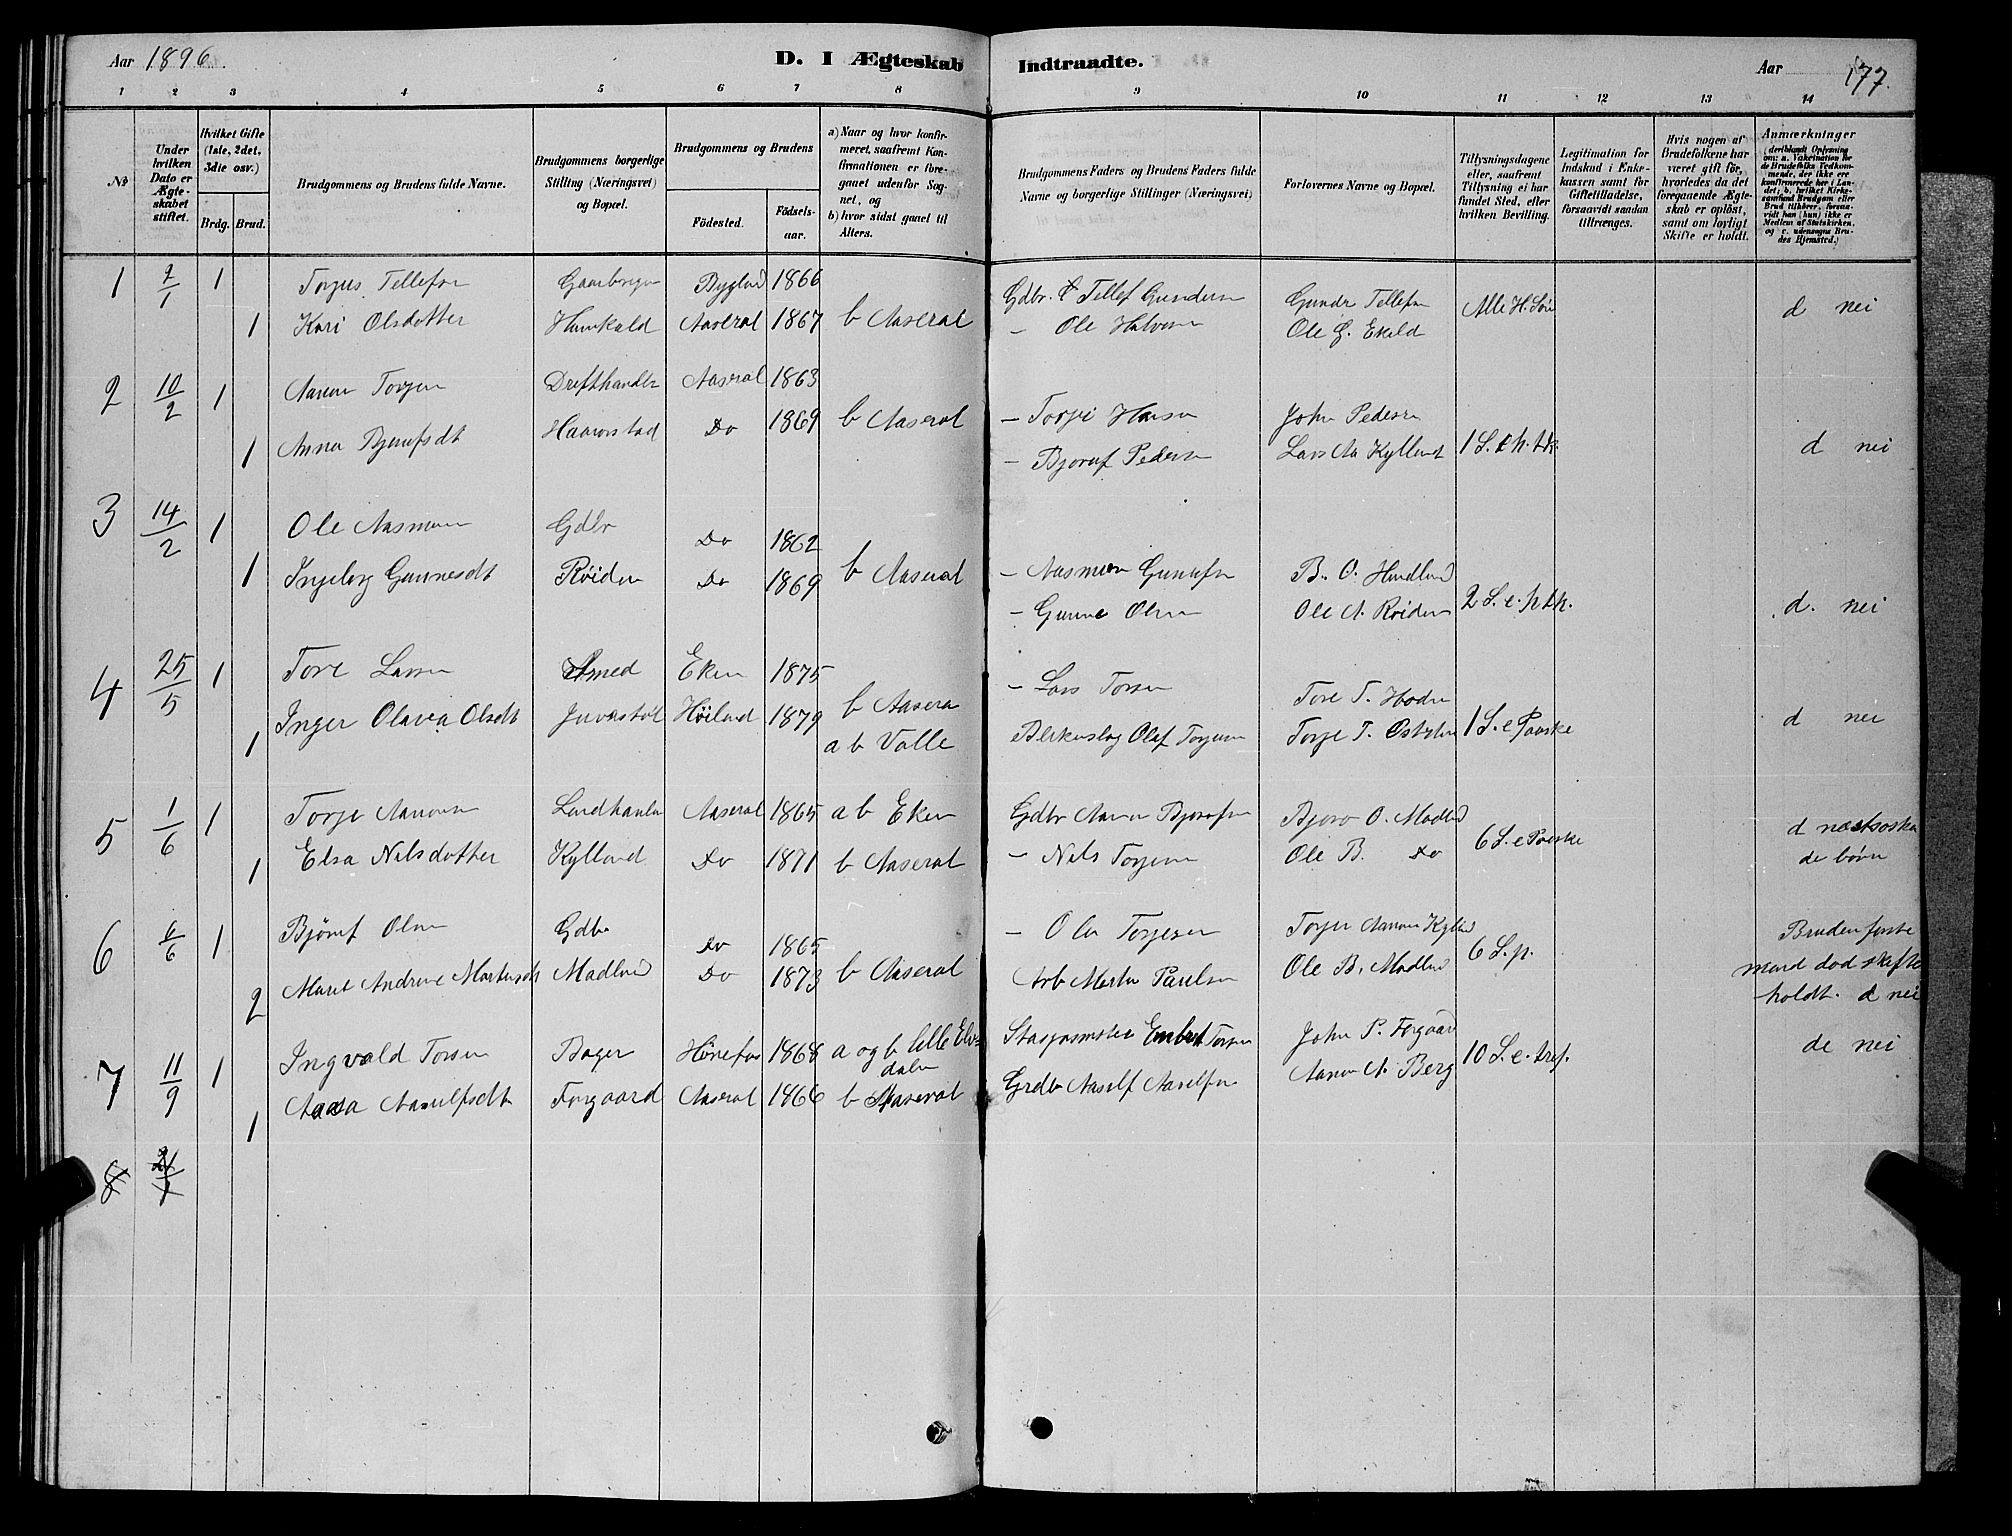 Aar 1896.
D. I Ægteskab Indtraadte.
Aar
177.
1 2 3 4 5 6 7 8 9 10 11 12 13 14
No
Under hvilken Dato er Ægteskabet stiftet.
Hvilket Gifte (1ste, 2det, 3die osv.)
Brdg. Brud.
Brudgommens og Brudens fulde Navne.
Brudgommens borgerlige Stilling (Næringsvei) og Bopæl.
Brudgommens og Brudens
Födested.
Födselsaar.
a) Naar og hvor konfirmeret, saafremt Konfirmationen er foregaaet udenfor Sognet, og
b) hvor sidst gaaet til Alters.
Brudgommens Faders og Brudens Faders fulde Navne og borgerlige Stillinger (Næringsvei)
Forlovernes Navne og Bopæl.
Tillysningsdagene eller, saafremt Tillysning ei har fundet Sted, efter hvilken Bevilling.
Legitimation for Indskud i Enkekassen samt for Giftetilladelse, forsaavidt saadan tiltrænges.
Hvis nogen af Brudefolkene har været gift för, hvorledes da det foregaaende Ægteskab er oplöst, samt om lovligt Skifte er holdt.
Anmærkninger (deriblandt Oplysning om: a. Vakcination for de Brudefolks Vedkommende, der ikke ere konfirmerede her i Landet; b. hvilket Kirkesamfund Brudgom eller Brud tilhörer, forsaavidt han (hun) ikke er Medlem af Statskirken, og c. udensogns Brudes Hjemsted.)
1 1 Torjus Tellefsn Bygland 1866 Gdbr. Tellef Gundersn Gundr Tellefsn
1 Kari Olsdotter Aaseral 1867 b Aaseral - Ole Halvorsn Ole G. Ekeld d nei
2 10/2 1 Aanon Torjesn Drifthandler Aaseral 1863 - Torje Hansn John Pedersn
1 Anna Bjorufsdt Haarorstad Do 1869 b Aaseral - Bjoruf Pedersn Lars Aa Kylland d nei
3 14/2 1 Ole Aasmunn Gdbr Do 1862 - Aasmun
1 Ingeborg Gunnesdt Röiden Do 1869 b Aaseral - Gunne Olsn Ole A. Röiden d. nei
4 25/5 1 Tore Larsn Smed Eken 1875 b Aasera - Lars Torsn Tore T.
1 Inger Olava Olsdt Höiland 1879 a b Valle Olaf Torjusn Torje T. 1 S. e Paaske d nei
5 1/6 1 Torje Aanonsn Aaseral 1865 a b Eken Gdbr Aanon Bjorufsn Bjoro O. Madland d næstsøsken
1 Elsa Nilsdotter Kylland Do 1871 b Aaseral - Nils Torjesn Ole B. Do 6 S. e Paaske de børn
6 6/6 1 Björuf Olsn Gdbr Do 1865 - Ole Torjesn Torjer Aanonsn Kyland 6 S. p. Bruden første
2 Maret Andrine Martinsdt Madland Do 1873 b Aaseral Arb Martin Paulsn Ole B. Madland mand død skifte
holdt. d nei
7 11/9 1 Ingvald Torsen Bager Hönefos 1868 a og b lille Elvedalen Embret Torsn John P. Forgaard 10 S. e. tref. de nei
1 Aasa Aasulfsdt Forgaard Aaseral 1866 b Aaseral Grdbr Aasulf Aasulfsn Aanon A. Berg
8